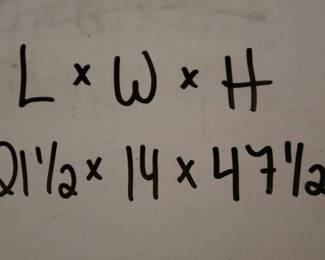 L x W x H
21 1/2 x 14 x 47 1/2